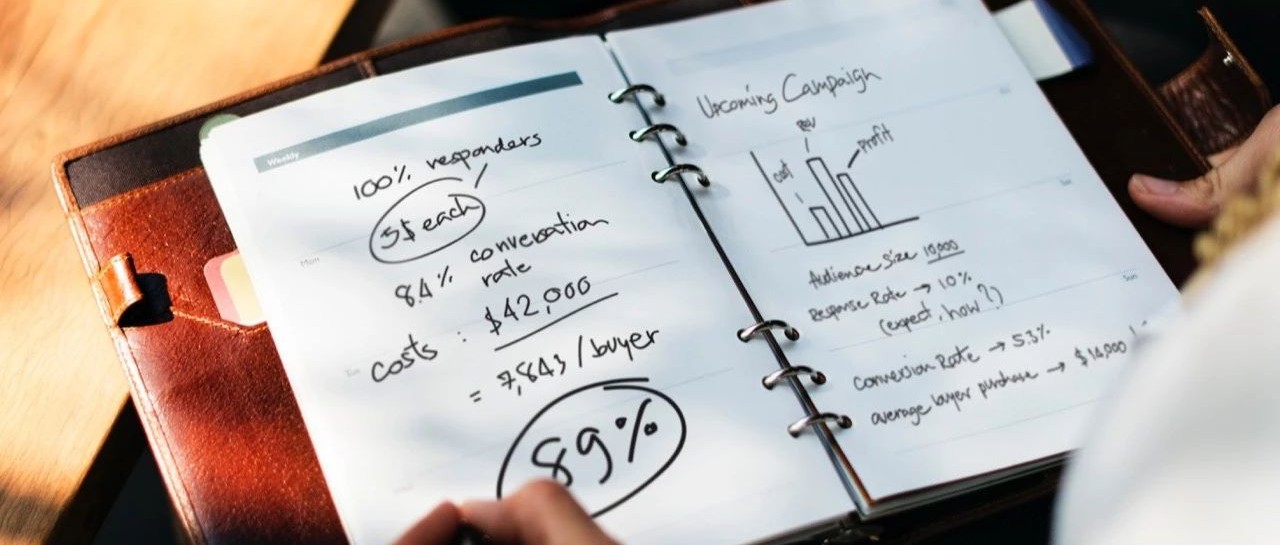 Weekly
100% responders
5$ each
8.4% conversation
rate
costs : $42,000
= 7,843 / buyer
89%
Mon
Tue
Upcoming Campaign
REV
cost
profit
Audience Size 10,000
Response Rate → 10%
(expect, how?)
Conversion Rate → 5.3%
average buyer purchase → $14,000
Sun